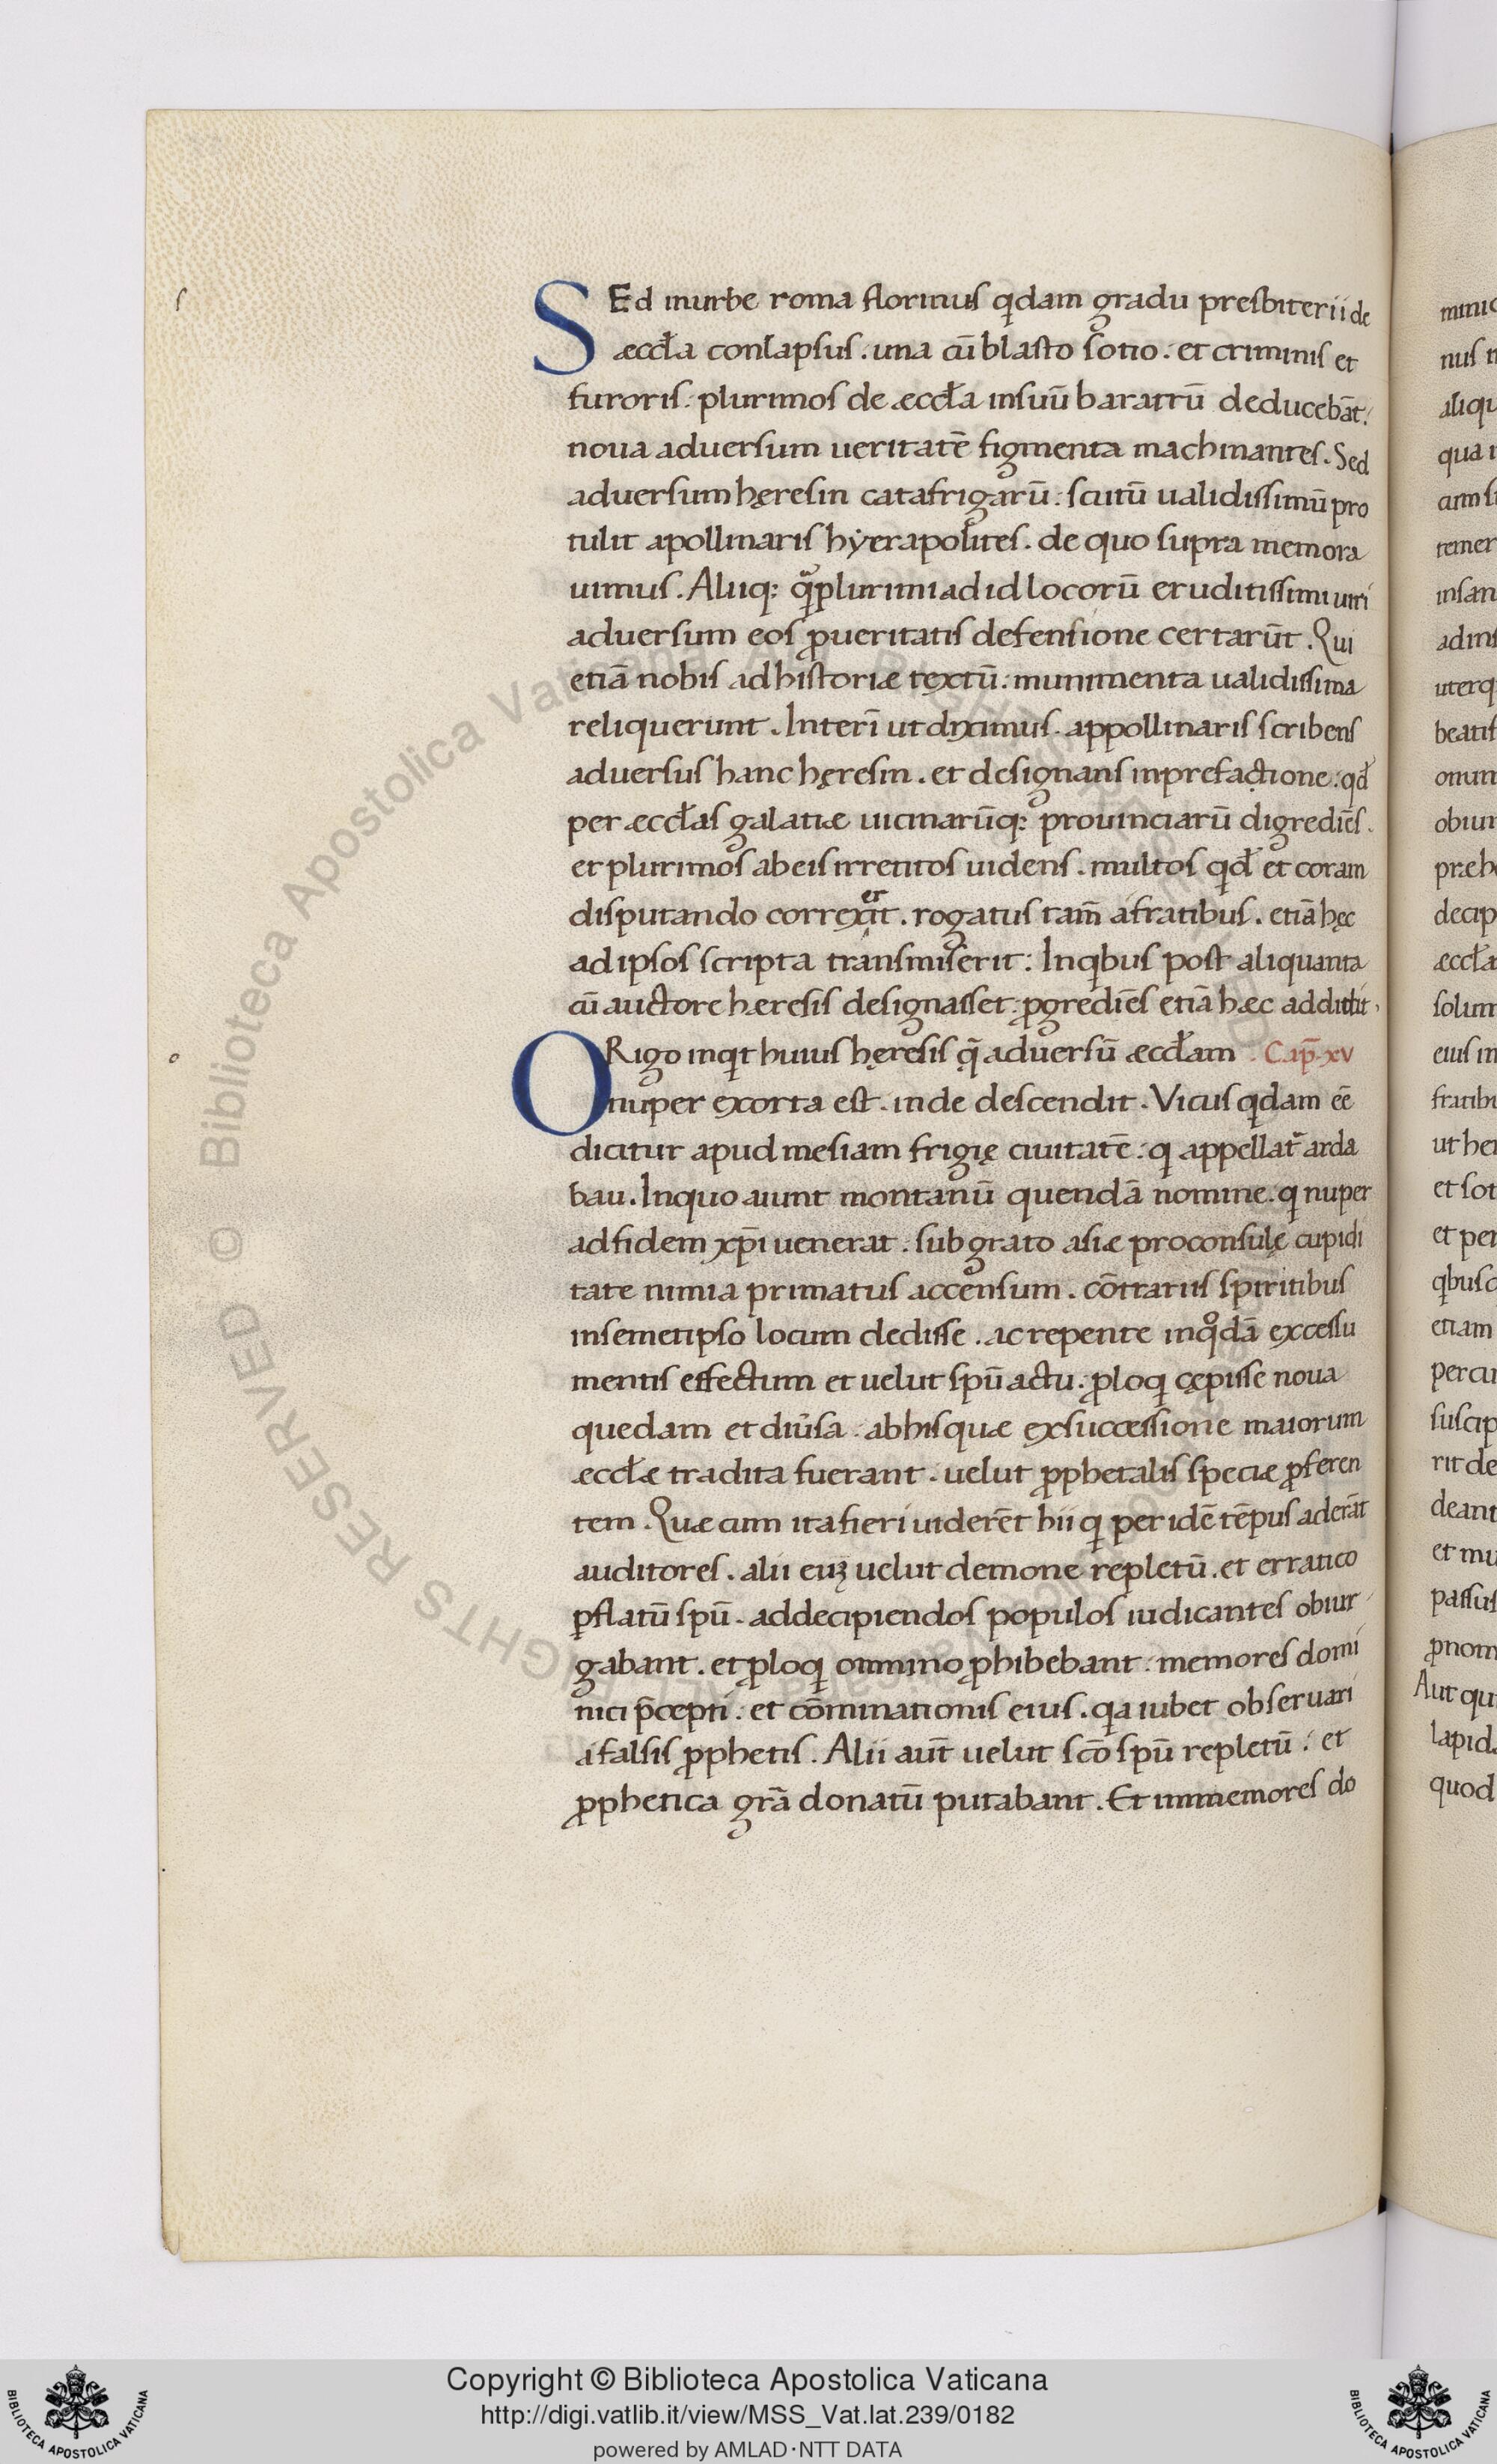 SEd inurbe roma florinus qdam gradu presbiterii de
æccła conlapsus . una cū blasto sotio . et criminis et
furoris . plurimos de æccła insuū baratrū deducebāt .
noua aduersum ueritatē figmenta machinantes . Sed
aduersum hęresin catafrigarū . scutū ualidissimū pro
tulit apollinaris hẏerapolites . de quo supra memora
uimus . Aliiq; qꝓplurimi ad id locorū eruditissimi uiri
aduersum eos ꝓueritatis defensione certarūt . Qui
etiā nobis ad historiæ textū . munimenta ualidissima
reliquerunt . Interī ut diximus . appollinaris scribens
aduersus hanc hęresin . et designans inprefactione . qđ
per æccłas galatiæ uicinarūq; prouinciarū digrediēs .
et plurimos abeis irretitos uidens . multos qđ et coram
disputando correxerat . rogatus tam̄ afratibus . etiā hęc
ad ipsos scripta transmiserit : Inqbus post aliquanta
cū auctore hæresis designasset . ꝓgrediēs etiā hæc addidit .
ORigo inqt huius hęresis q̄ aduersū æccłam . Cap̄ . xv
nuper exorta est . inde descendit . Vicus qdam ēē
dicitur apud mesiam frigię ciuitatē . q appellat᷑ arda
bau . Inquo aiunt montanū quendā nomine . q nuper
ad fidem xp̄i uenerat . sub grato asiæ proconsulę cupidi
tate nimia primatus accensum . cōtrariis spiritibus
insemetipso locum dedisse . ac repente inqͦdā excessu
mentis effectum et uelut spū actu . ꝓloq cępisse noua
quedam et diūsa . abhisquæ exsuccessione maiorum
æccłæ tradita fuerant . uelut ꝓphetalis speciæ ꝓferen
tem . Quæ cum ita fieri uiderēt hii q per idē tēpus aderāt
auditores . alii eūꝫ uelut demone repletū . et erratico
ꝑflatū spū . addecipiendos populos iudicantes obiur
gabant . et ꝓloq omnino ꝓhibebant . memores domi
nici p̄cepti . et cōminationis eius . qa iubet obseruari
a falsis ꝓphetis . Alii aut̄ uelut scō spū repletū . et
ꝓphetica grā donatū putabant . Et immemores do
Copyright © Biblioteca Apostolica Vaticana
http://digi.vatlib.it/view/MSS_Vat.lat.239/0182
powered by AMLAD·NTT DATA